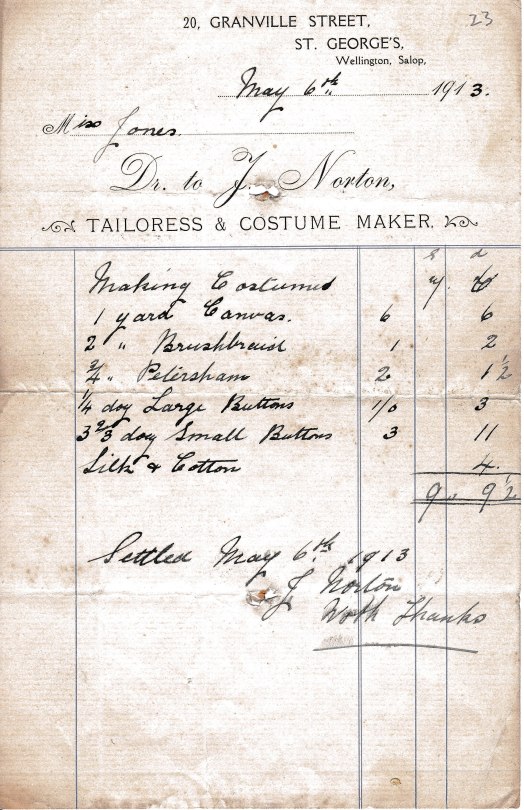 23
20, GRANVILLE STREET,
ST. GEORGE'S,
Wellington, Salop,
May 6th 1913.
Miss Jones.
Dr. to J. Norton,
TAILORESS & COSTUME MAKER.
s d
Making Costumes 7. 6
1 yard Canvas. 6 6
2 " Brushbraid 1 2
3/4 " Petersham 2 1 1/2
1/4 doz Large Buttons 1/0 3
3 2/3 doz Small Buttons 3 11
Silk & Cotton 4.
9 " 9 1/2
Settled May 6th 1913
J Norton
With Thanks